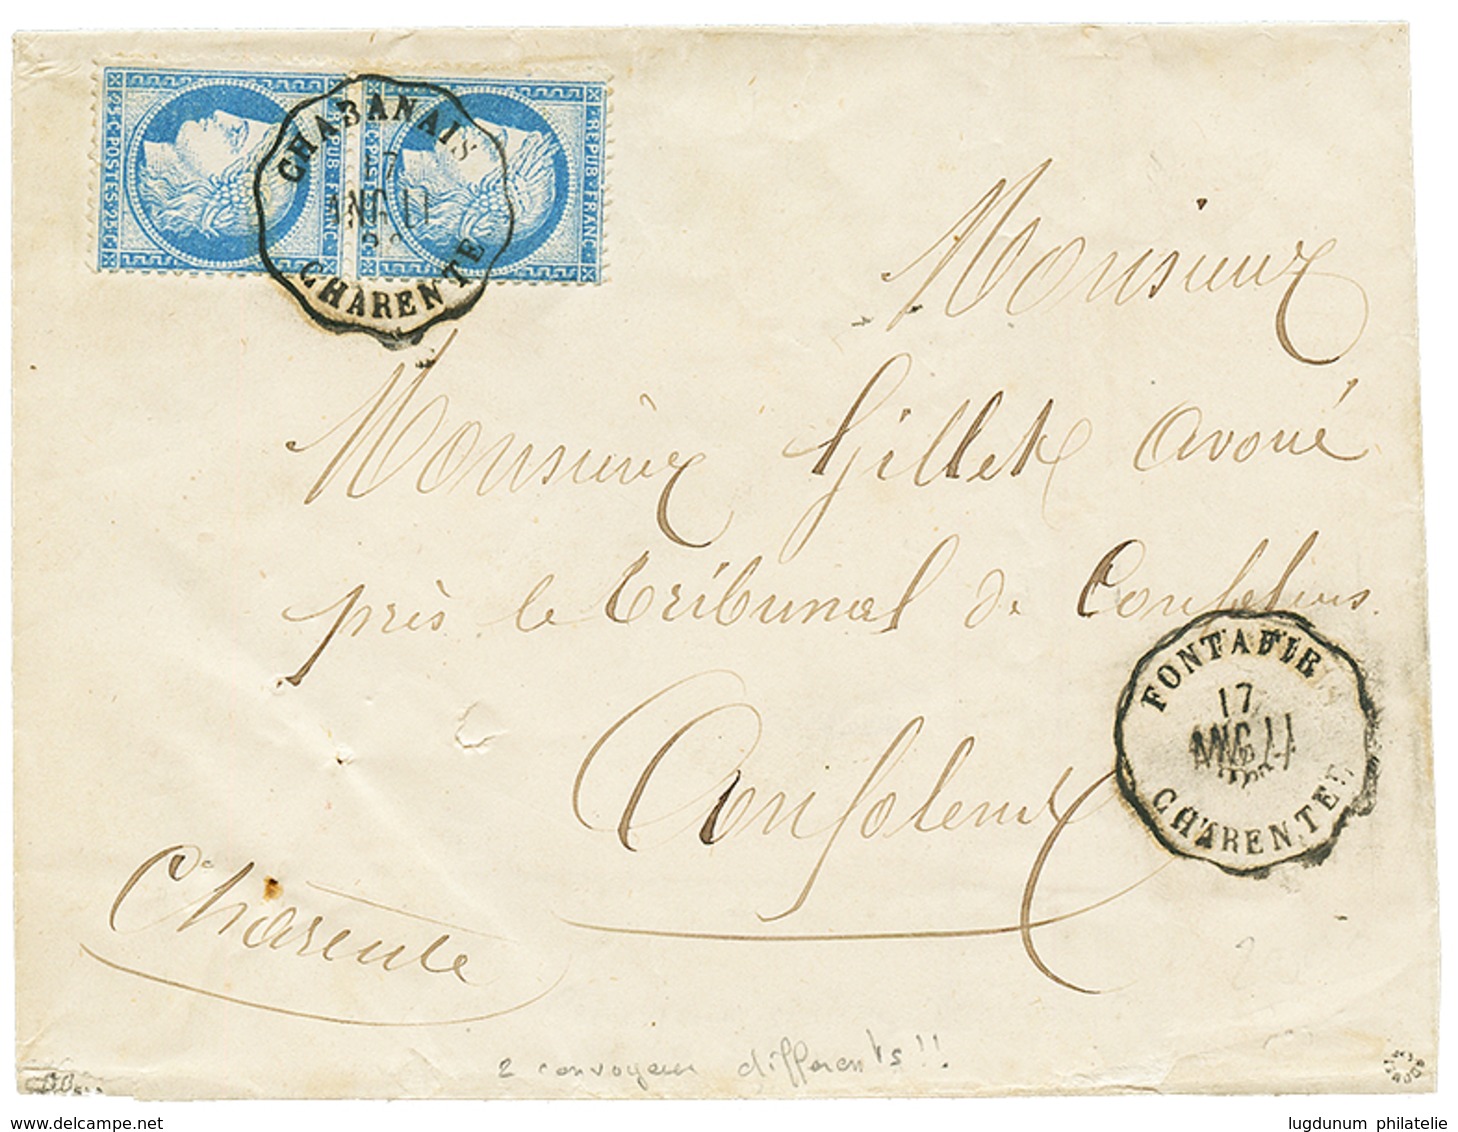 25·C·POSTES·25·C REPUB·FRANC
C·POSTES REPUB·FRANC
CHABANAIS
17
ANG.LI
CHARENTE
Monsieur
Monsieur Gillet avoué
près le tribunal de Confolens
Confolens
Charente
FONTAFIE
17
ANG.LI
CHARENTE
2 convoyeur différents!!
lugdunum philatelie